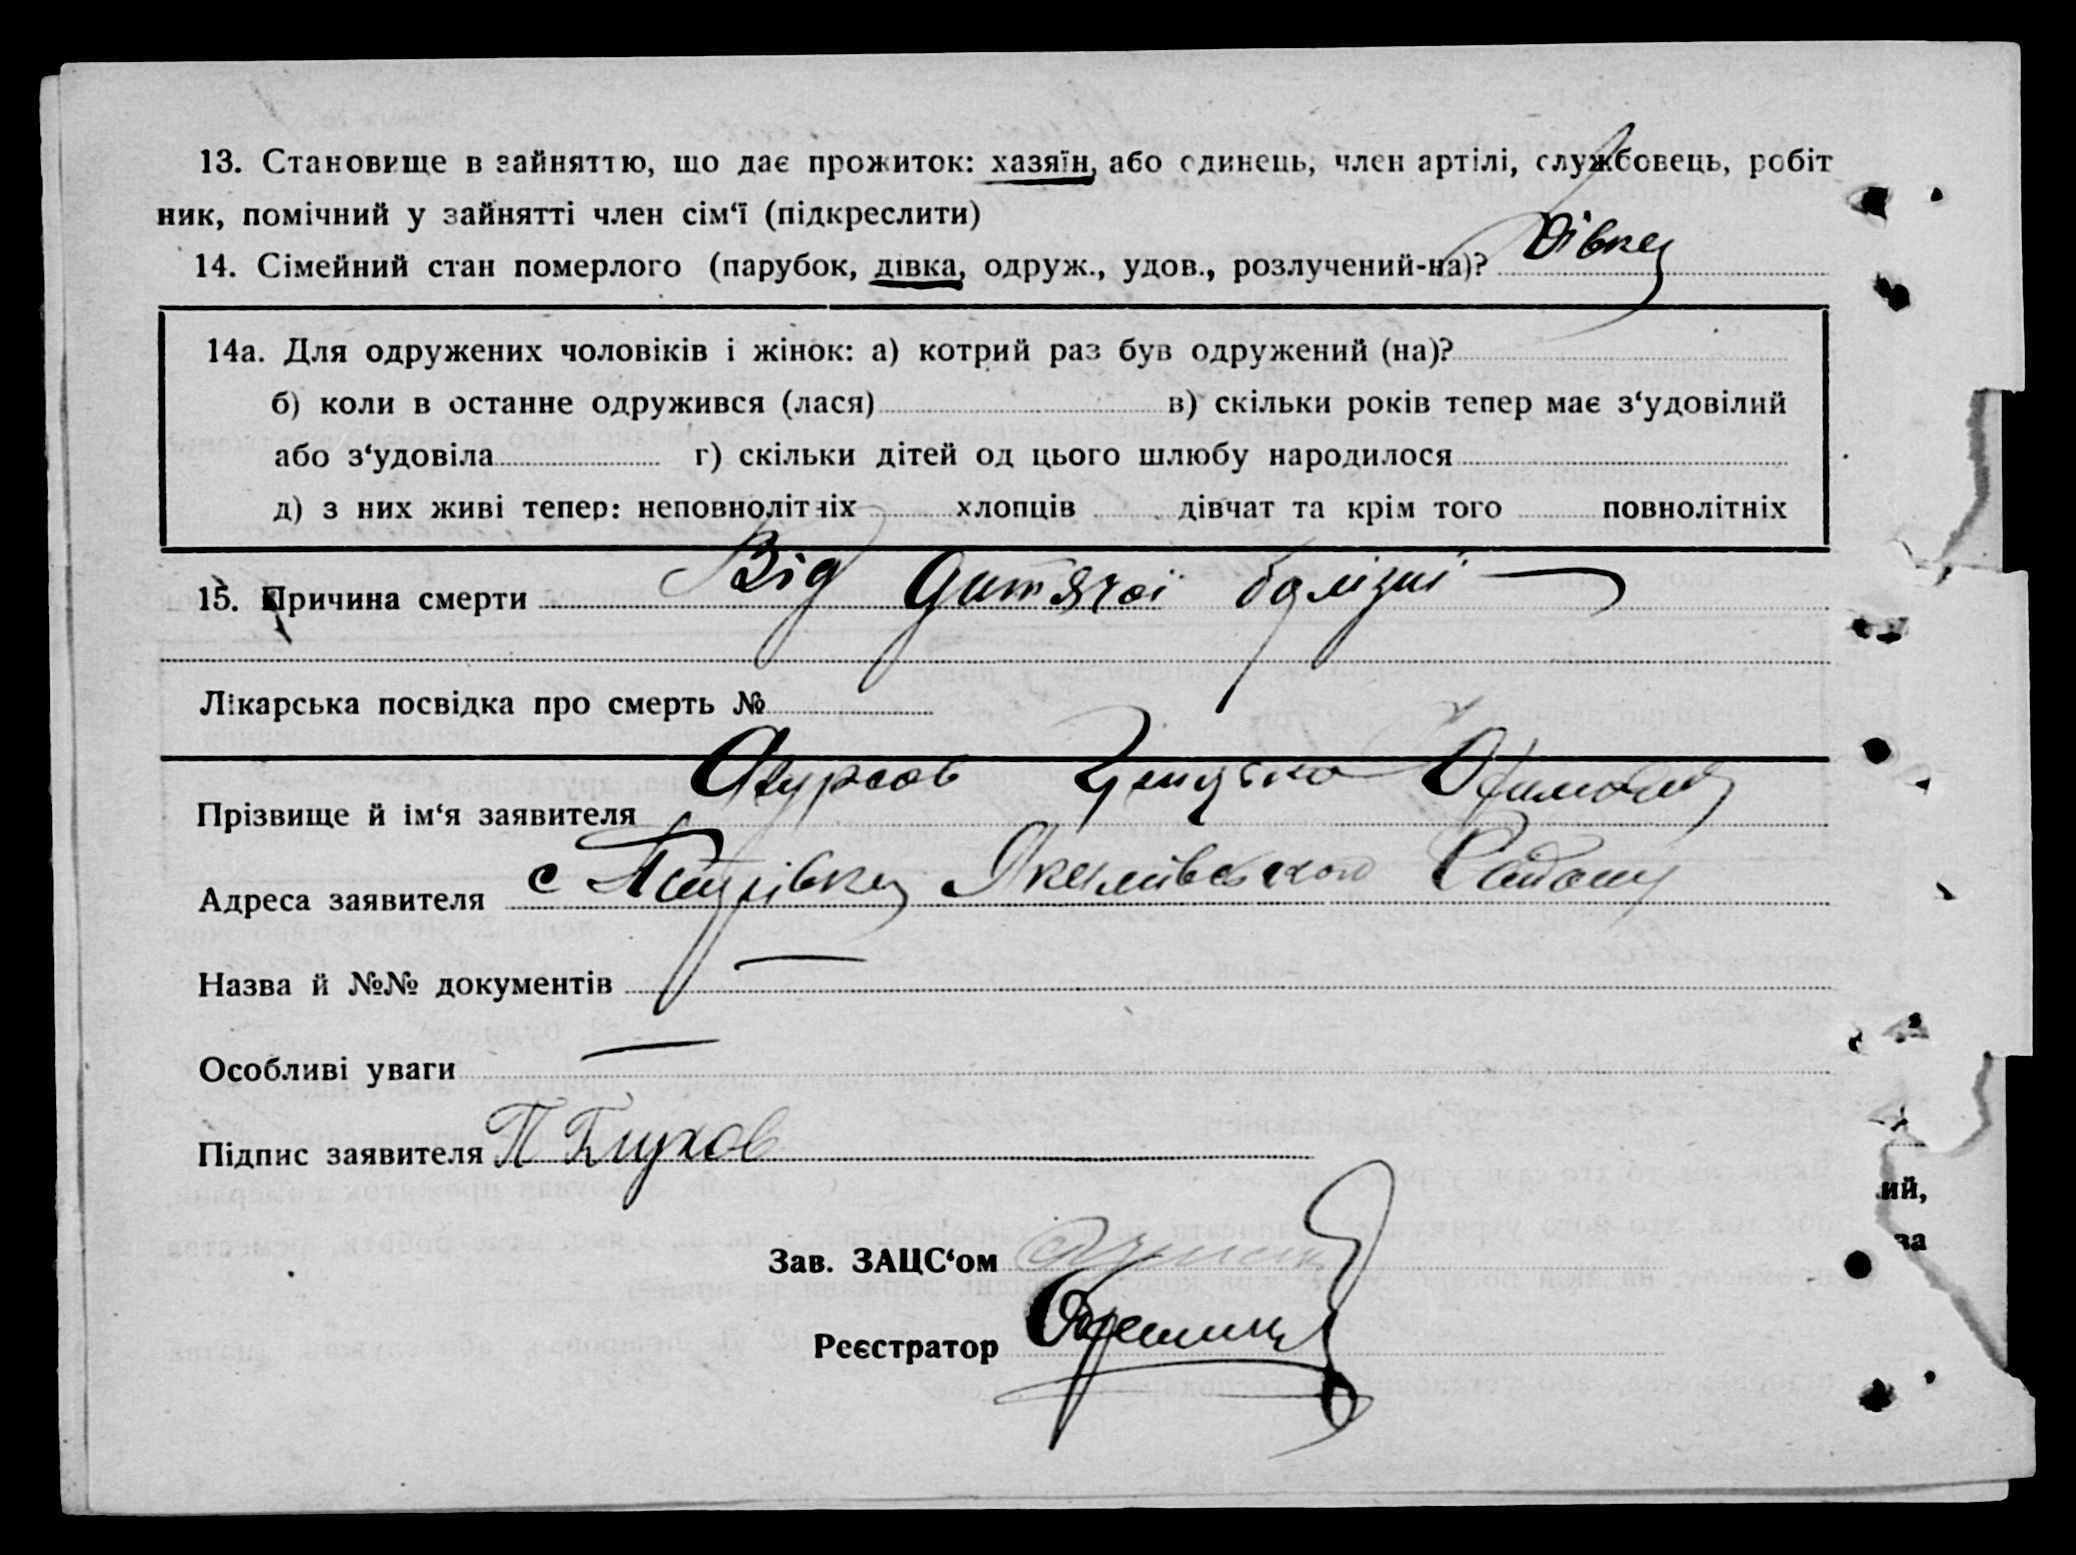 13. Становище в зайняттю, що дає прожиток: хазяїн, або одинець, член артілі, службовець, робіт
ник, помічний у зайнятті член сім‘ї (підкреслити)
14. Сімейний стан померлого (парубок, дівка, одруж., удов., розлучений-на)? Дівка
14а. Для одружених чоловіків і жінок: а) котрий раз був одружений (на)?
б) коли в останне одружився (лася) в) скільки років тепер має з‘удовілий
або з‘удовіла г) скільки дітей од цього шлюбу народилося
д) з них живі тепер: неповнолітніх хлопців дівчат та крім того повнолітніх
15. Причина смерти Від дитячої болізні
Лікарська посвідка про смерть №
Прізвище й ім‘я заявителя
Адреса заявителя с Якимівського Району
Назва й №№ документів —
Особливі уваги —
Підпис заявителя П Глухов
Зав. ЗАЦС‘ом
Реєстратор
ий,
за